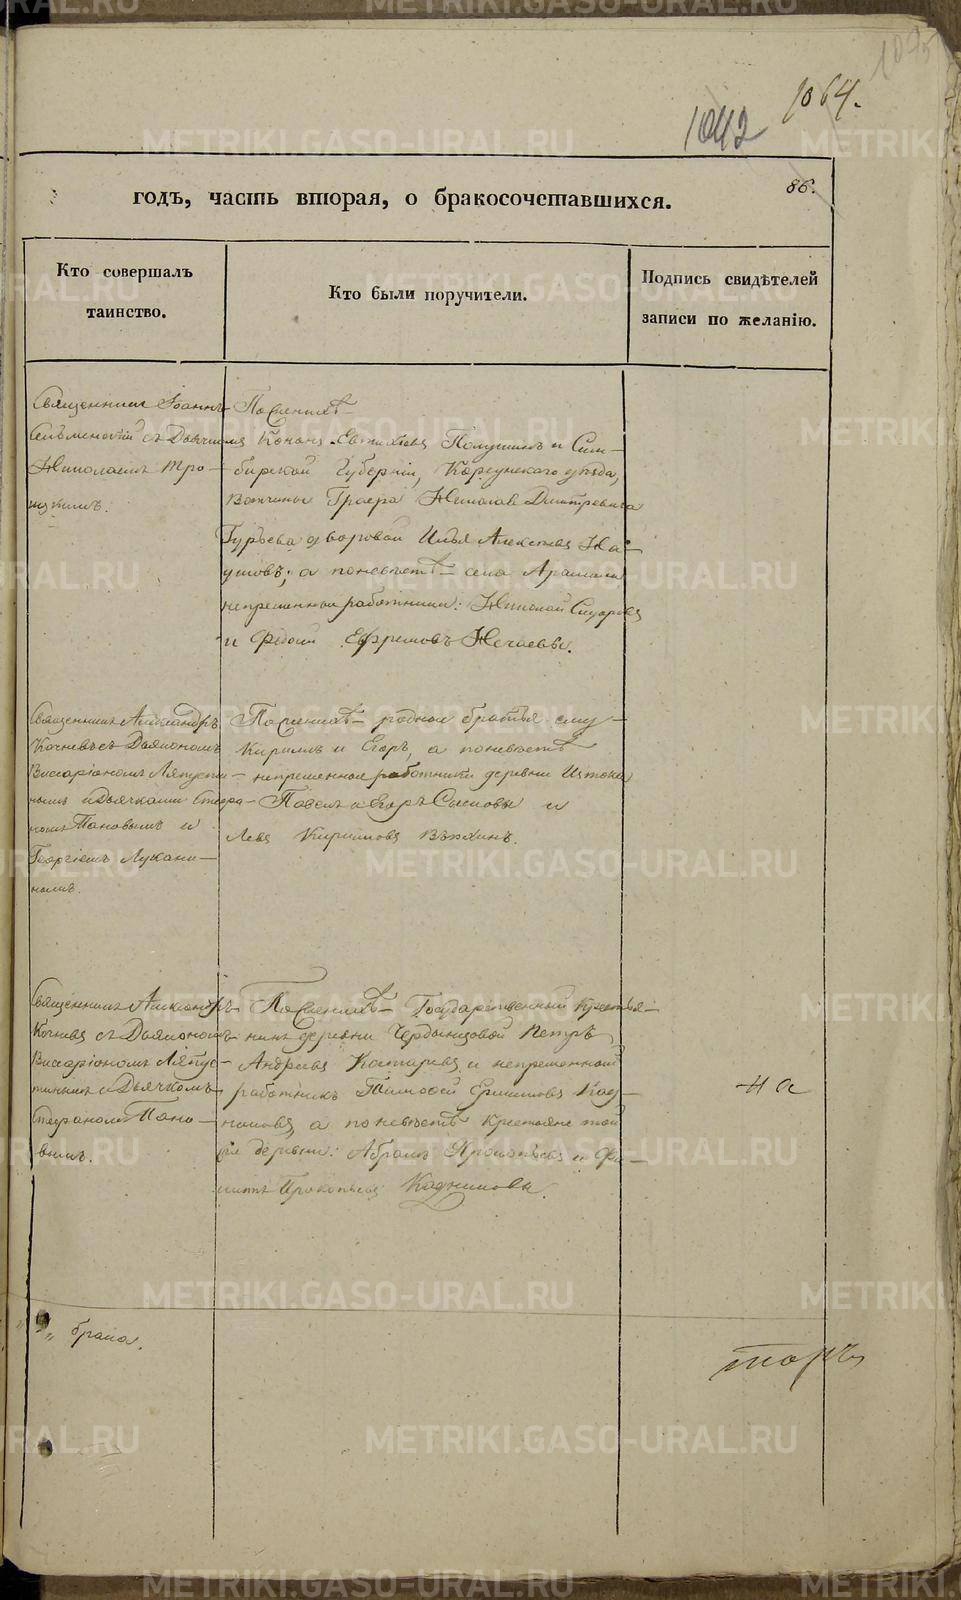 1064.
1042
1045
86.
годъ, часть вторая, о бракосочетавшихся.
Кто совершалъ
таинство.
Кто были поручители.
Подпись свидѣтелей
записи по желанію.
Священникъ Іоаннъ
съ Дьячкомъ
Николаемъ Тро-
По женихѣ
Кононъ Евтихіевъ Полушинъ и Сим-
бирской Губерніи, Корсунскаго уѣзда,
Вотчины Графа Николая Дмитревича
Гурьева дворовой Илья Алексѣевъ На-
умовъ; а по невѣстѣ села Арамили
непременные работники: Николай Сидоровъ
и Федотъ Ефремовъ Нечаевы.
Священникъ Александръ
Кочневъ съ Дьякономъ
Виссаріономъ Ляпусти-
нымъ и Дьячками Стефа-
номъ Пановымъ и
Георгіемъ Лукани-
нымъ.
По женихѣ родные братья ему
Кириллъ и Егоръ, а по невѣстѣ
непременные работники деревни Истока
Павелъ и Егоръ Сысковы и
Левъ Кириловъ
Священникъ Александръ
Кочневъ съ Дьякономъ
Виссаріономъ Ляпус-
тинымъ и Дьячкомъ
Стефаномъ Пано-
вымъ.
По женихѣ Государственный крестья-
нинъ деревни Петръ
Андреевъ Костаревъ и непременный
работникъ Тимофей Ермиловъ Кад-
никовъ, а по невѣстѣ крестьяне той
же деревни: Абрамъ Прокопьевъ и Фи-
липпъ Прокопьевъ Кадниковы.
на
брака.
торъ
METRIKI.GASO-URAL.RU